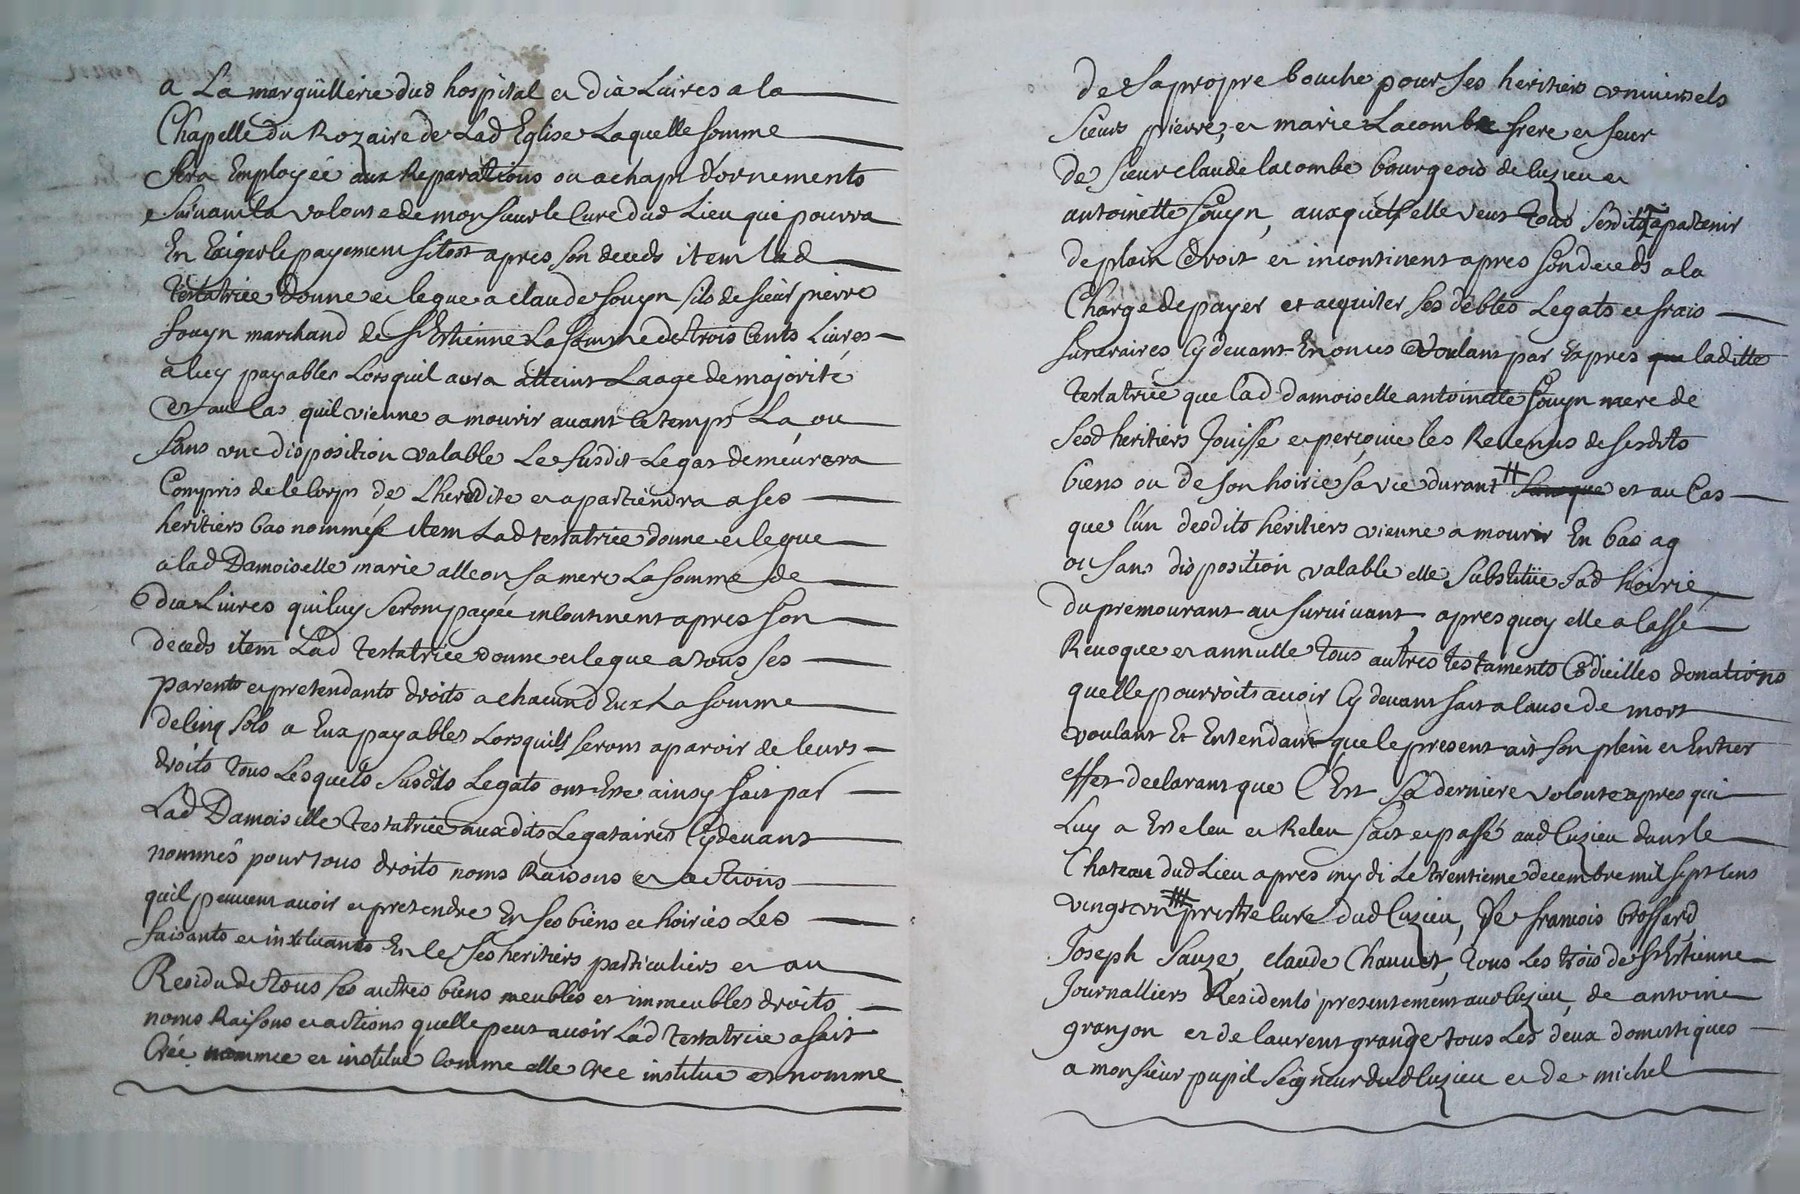 a La marguillerie dud hospital et dix Livres a la
Chapelle du Rozaire de Lad Eglise Laquelle somme
sera Employée aux Reparations ou achapt d'ornements
suivant la volonte de monsieur le Curé dud Lieu qui pourra
En Exiger le payement sitost apres son deceds item lad
testatrice donne et legue a claude souyn fils de sieur pierre
souyn marchand de St Estienne La somme de trois Cents Livres
a luy payables Lorsquil aura atteint Laage de majorité
Et au Cas quil vienne a mourir avant Ce temps La ou
sans une disposition valable Le susdit Legat demeurera
Compris de le Corps de L'heredite et apartiendra a ses
heritiers bas nommés item Lad testatrice donne et legue
a lad Damoiselle marie alleon sa mere La somme de
dix Livres qui luy seront payée incontinent apres son
deceds item Lad testatrice donne et legue a tous ses
parents et pretendants droits a chacun d'Eux La somme
de Cinq sols a Eux payables Lorsquils seront aparoir de leurs
droits tous Lesquels susdits Legats ont Esté ainsy fait par
Lad Damoiselle testatrice auxdits Legataires Cy devant
nommés pour tous droits noms Raisons et actions
quil peuvent avoir et pretendre En ses biens et hoiries Les
faisants et instituants En Ce ses heritiers particuliers et au
Residu de tous ses autres biens meubles et immeubles droits
noms Raisons et actions quelle peut avoir Lad testatrice a fait
Créé nommée et institué Comme elle Crée institue et nomme
de sa propre bouche pour ses heritiers universels
sieurs pierre, et marie Lacombe frere et seur
de sieur claude lacombe bourgeois de luzieu et
antoinette souyn, auxquels elle veut tous sesdits apartenir
de plain droit et incontinent apres son deceds a la
Charge de payer et acquiter ses debtes Legats et frais
funeraires Cy devant Enoncés voulant par Exprès que laditte
testatrice que lad damoiselle antoinette souyn mere de
sesd heritiers Jouisse et perçoive les Revenus de sesdits
biens ou de son hoirie sa vie durant et au Cas
que l'un desdits heritiers vienne a mourir En bas ag
ou sans disposition valable elle substitüe sad hoirie
du premourant au survivant, apres quoy elle a Cassé
Revoque et annulle tous autres testaments Codicilles donations
quelle pourroit avoir Cy devant fait a Cause de mort
voulant Et Entendant que le present ait son plein et Entier
effet declarant que C Est sa derniere volonté apres qui
Luy a Esté leu et Releu fait et passé aud Cuzieu dans le
Chateau dud Lieu apres mydi Le trentieme decembre mil sept Cens
vingt un prestre Curé dud Cuzieu, de francois brossard,
Joseph Sauze, claude Chauvet, tous Les trois de St Estienne
Journalliers Residents presentement aud Cuzieu, de antoine
granjon et de laurent grange tous Les deux domestiques
a monsieur pupil seigneur dud Cuzieu et de michel